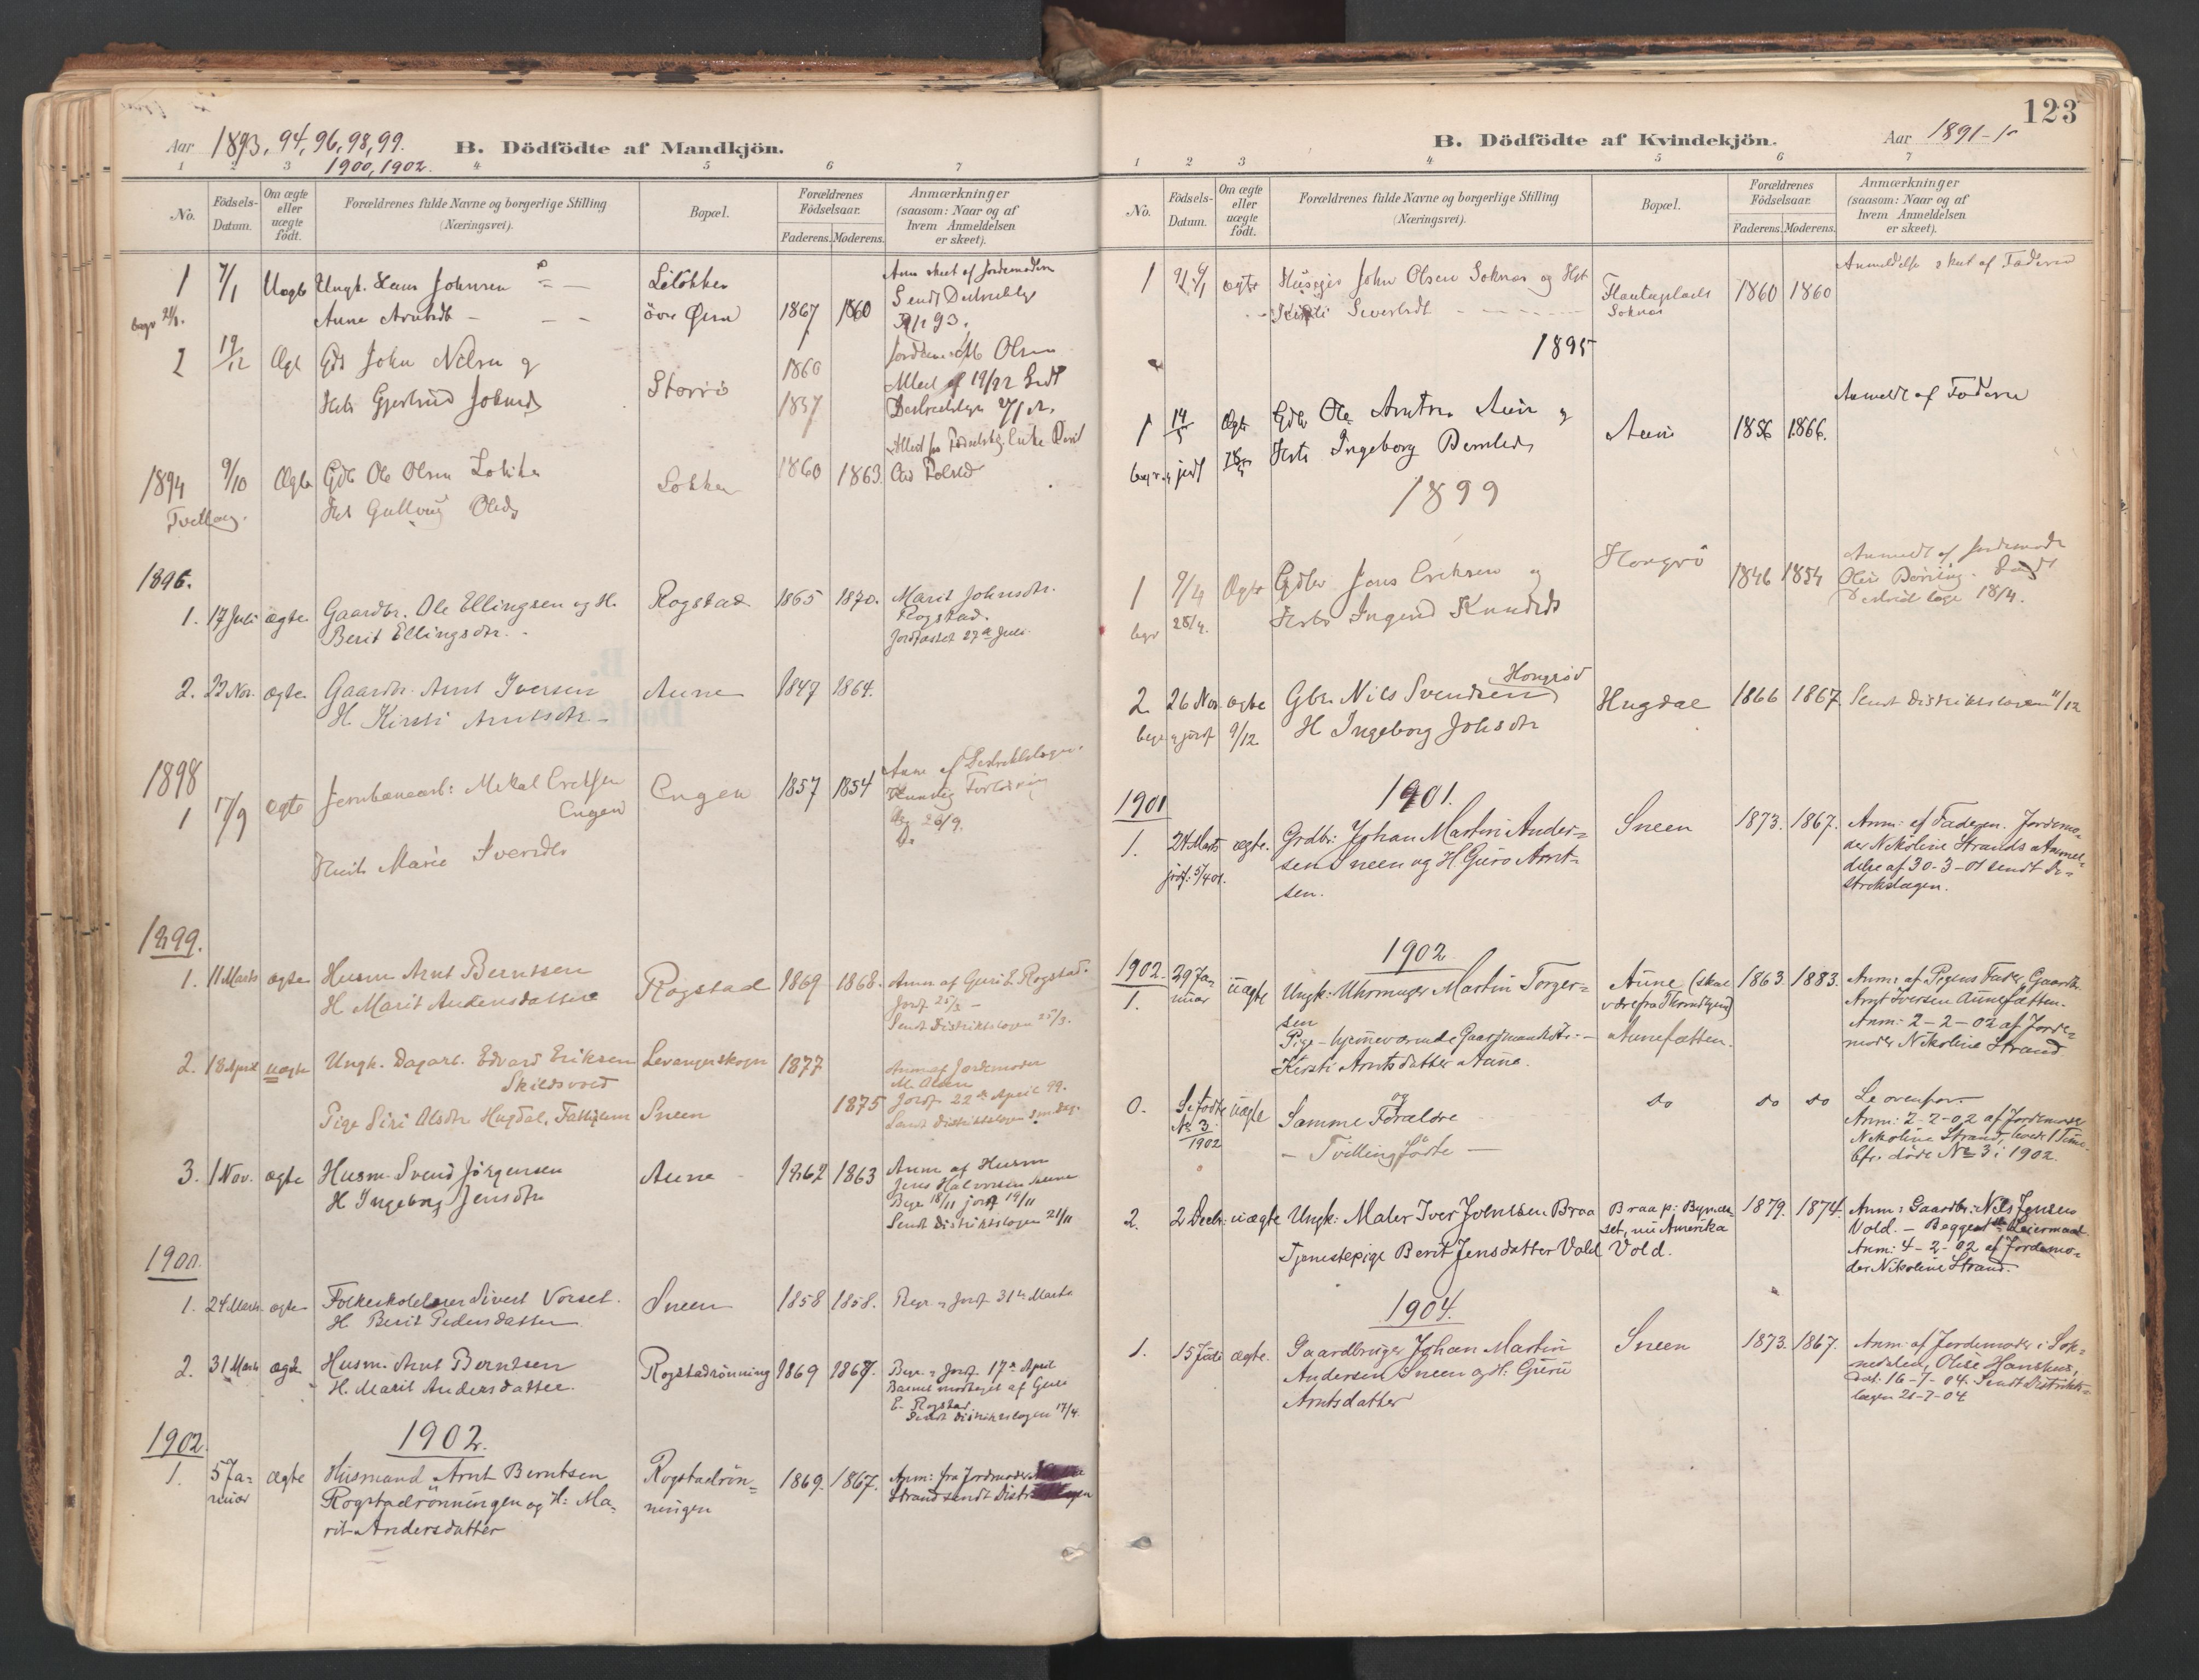 Aar 1893, 94, 96, 98, 99.
1900, 1902.
B. Dödfödte af Mandkjön.
1 2 3 4 5 6 7
No.
Födsels-
Datum.
Om ægte
eller
uægte
födt.
Forældrenes fulde Navne og borgerlige Stilling
(Næringsvei).
Bopæl.
Forældrenes
Födselsaar.
Faderens. Moderens.
Anmærkninger
(saasom: Naar og af
hvem Anmeldelsen
er skeet).
1 7/1 Uægte Ungk. Hans Johnsen
Anne Arntsdt
øvre
1867 1860
Anm skeet af Jordemoderen
Sendt
2 19/12 Ægt Gdb John Nilsen og
Hst Gjertrud Johnsd
Storrö
1860
1857
Olsen
1894 9/10 Ægte Gdb Ole Olsen Løkken
Hst Olsd
Løkken
1860 1863.
1896.
1. 17 Juli ægte Gaardbr. Ole Ellingsen og H.
Berit Ellingsdtr.
Rogstad 1865 1870. Marit Johnsdtr.
Rogstad.
Jordfæstet 27de Juli
2. 22 Nov. ægte Gaardbr. Arnt Iversen
H. Kirsti Arntsdtr
Aune 1847 1864.
1898
1 17/9 ægte Jernbanearb: Mikal Eriksen
Engen
Marie
Engen 1857 1854
1899.
1. 11 Marts ægte Husm Arnt Berntsen
H Marit Andersdatter
Rogstad 1869 1868. Anm. af Guri E. Rogstad.
Jordf. 25/3
Sendt Distriktslægen 25/3.
2. 18 April uægte Ungk. Dagarb. Edvard Eriksen
Skildsvold
Levangerskogn 1877
Pige Siri Olsdtr Hugdal, Fattiglem Sneen 1875
Anm af Jordemoder
M. Olsen
Jordf 22de April 99.
Sendt Distriktslægen
3. 1 Nov. ægte Husm. Svend Jörgensen
H Ingeborg Jensdtr
Aune 1862 1863 Anm af Husm
Jens Halvorsen Aune
Begr 18/11 jordf 19/11
Sendt Distriktslægen 21/11
1900.
1. 24 Marts ægte Folkeskolelærer Sivert Vorset.
H Berit Pedersdatter
Sneen 1858 1858. Begr. & Jordf. 31te Marts
2. 31 Marts ægte Husm. Arnt Berntsen
H. Marit Andersdatter.
Rogstadrönning 1869 1867. Begr. & Jordf. 17de April
Barnet modtaget af Guri
E. Rogstad.
Sendt Distriktslægen 17/4.
1902. 1902.
1. 5 Ja-
nuar
ægte Husmand Arnt Berntsen
Rogstadrönningen og H: Ma-
rit Andersdatter
Rogstadrön-
ningen
1869. 1867. Anm: fra Jordmoder
Strand sendt
123
B. Dödfödte af Kvindekjön.
Aar 1891-
1 2 3 4 5 6 7
No.
Födsels-
Datum.
Om ægte
eller
uægte
födt.
Forældrenes fulde Navne og borgerlige Stilling
(Næringsvei).
Bopæl.
Forældrenes
Födselsaar.
Faderens. Moderens.
Anmærkninger
(saasom: Naar og af
hvem Anmeldelsen
er skeet).
1 ægte Huseier John Olsen Soknæs og Hst
Sivertsdt
Soknæs
1860 1860
Anmeldelse skeet af Faderen
1895
1 14/5 Ægte Gdb Ole Arntsen Aune og
Hst Ingeborg
Aune 1856 1866.
Anmeldt af Faderen
1899
1 9/4 Ægte Gdbr Jens Eriksen og
Hst Ingrid Knudsdt
Hongrö
1846 1854
Anmeldt af Jordemoder
18/4.
begr 25/4.
2. 26 Nov. ægte Gbr. Nils Svendsen Hongröd
H Ingeborg Johsdtr
Hugdal 1866 1867. Sendt Distriktslægen 11/12
begr & jordf 9/12
1901 1901.
1. 24 Marts ægte. Grdbr: Johan Martin Ander-
sen Sneen og H. Guro Arnt-
sen.
jrdf: 5/4 01.
Sneen 1873. 1867. Anm: af Faderen. Jordemo-
der Nikoline Strands Anmel-
delse af 30-3-01 sendt Di-
striktslægen.
1902
1902. 29 Ja-
nuar
1. uægte Ungk: Uhrmager Martin Torger-
sen
Pige - hjemmeværende Gaardmandsdtr: -
Kirsti Arntsdatter Aune.
Aune (skal
være fra Throndhjem)
Aunefætten.
1863. 1883. Anm: af Pigens Fader, Gaardbr.
Arnt Iversen Aunefætten.
Anm: 2-2-02 af Jorde-
moder Nikoline Strand
0. Se födte
No 3
1902
uægte Samme Forældre
og
- Tvillingfödte -
do do do Se ovenfor.
Anm: 2-2-02 af Jordemoder
Nikoline Strand,
Cfr. döde No 3 i 1902.
2. 2 Decbr: uægte Ungk: Maler Iver Johnsen Braa
Tjenestepige Berit Jensdatter Vold
Braa p: Bynæs-
set, nu Amerika
Vold.
1879. 1874. Anm: Gaardbr: Nils Jensen
Vold. - Begges Leiermaal.
Anm: 4-2-02 af Jordemo-
der Nikoline Strand.
1904.
1. 15 Juli ægte. Gaardbruger Johan Martin
Andersen Sneen og H: Guru
Arntsdatter
Sneen 1873. 1867. Anm: af Jordemoder i Sok-
nedalen, Olise Hanshus,
dat: 16-7-04. Sendt Distrikts-
lægen 21-7-04